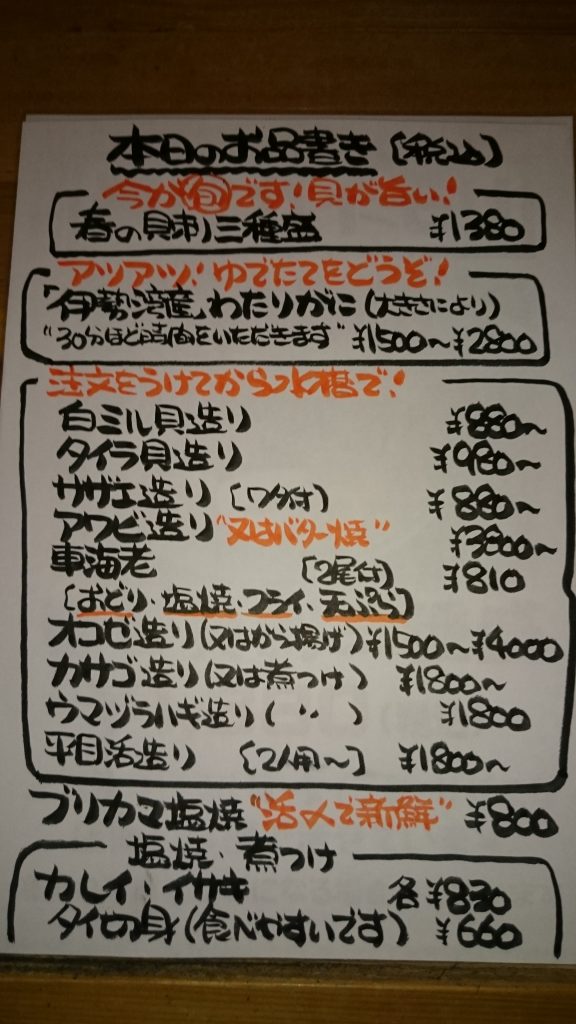 本日のお品書き〔税込〕
今が旬です！貝が旨い！
春の貝刺し三種盛 ¥1380
アツアツ！ゆでたてをどうぞ！
「伊勢湾産」わたりがに（大きさにより）
"30分ほど時間をいただきます" ¥1500〜¥2800
注文をうけてから水槽で！
白ミル貝造り ¥880〜
タイラ貝造り ¥980〜
サザエ造り〔ワタ付〕 ¥880〜
アワビ造り"又はバター焼" ¥3800〜
車海老 〔2尾付〕 ¥810
〔おどり、塩焼、フライ、天ぷら〕
オコゼ造り（又はから揚げ）¥1500〜¥4000
カサゴ造り（又は煮つけ） ¥1800〜
ウマヅラハギ造り（ 〃 ） ¥1800
平目活造り 〔2人用〜〕 ¥1800〜
ブリカマ塩焼"活〆で新鮮" ¥800
塩焼、煮つけ
カレイ、イサキ 各¥830
タイ切身（食べやすいです） ¥660